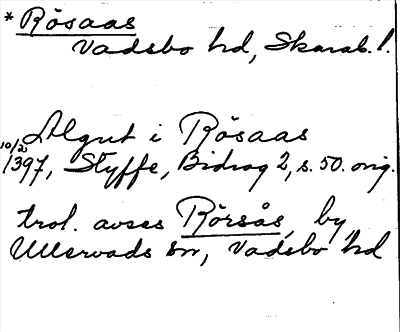 * Rösaas
Vadsbo hd, Skarab. l.
Algut i Rösaas
10/2 1397, Styffe, Bidrag 2, s. 50. orig.
trol. avses Rörsås, by,
Ullervads sn, Vadsbo hd